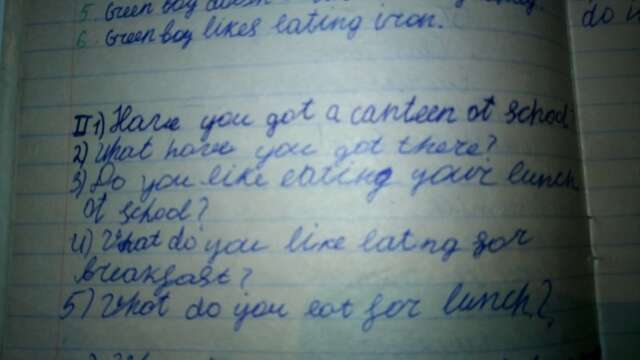 5. Green boy
6. Green boy likes eating iron.
do
II 1) Have you got a canteen at school?
2) What have you got there?
3) Do you like eating your lunch
at school?
4) What do you like eatng for
breakfast?
5) What do you eat for lunch?